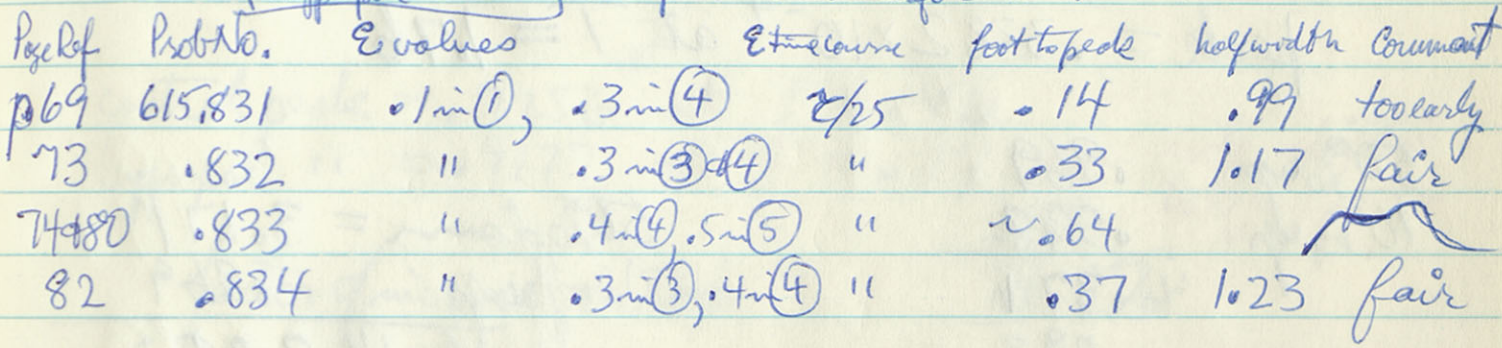 Page Ref Prob No. E values E timecourse foot to peak halfwidth Comment
p69 615.831 .1 in ①, .3 in ④ τ/25 .14 .99 too early
73 .832 " .3 in ③ & ④ " .33 1.17 fair
74 & 80 .833 " .4 in ④, .5 in ⑤ " ~.64
82 .834 " .3 in ③, .4 in ④ " .37 1.23 fair